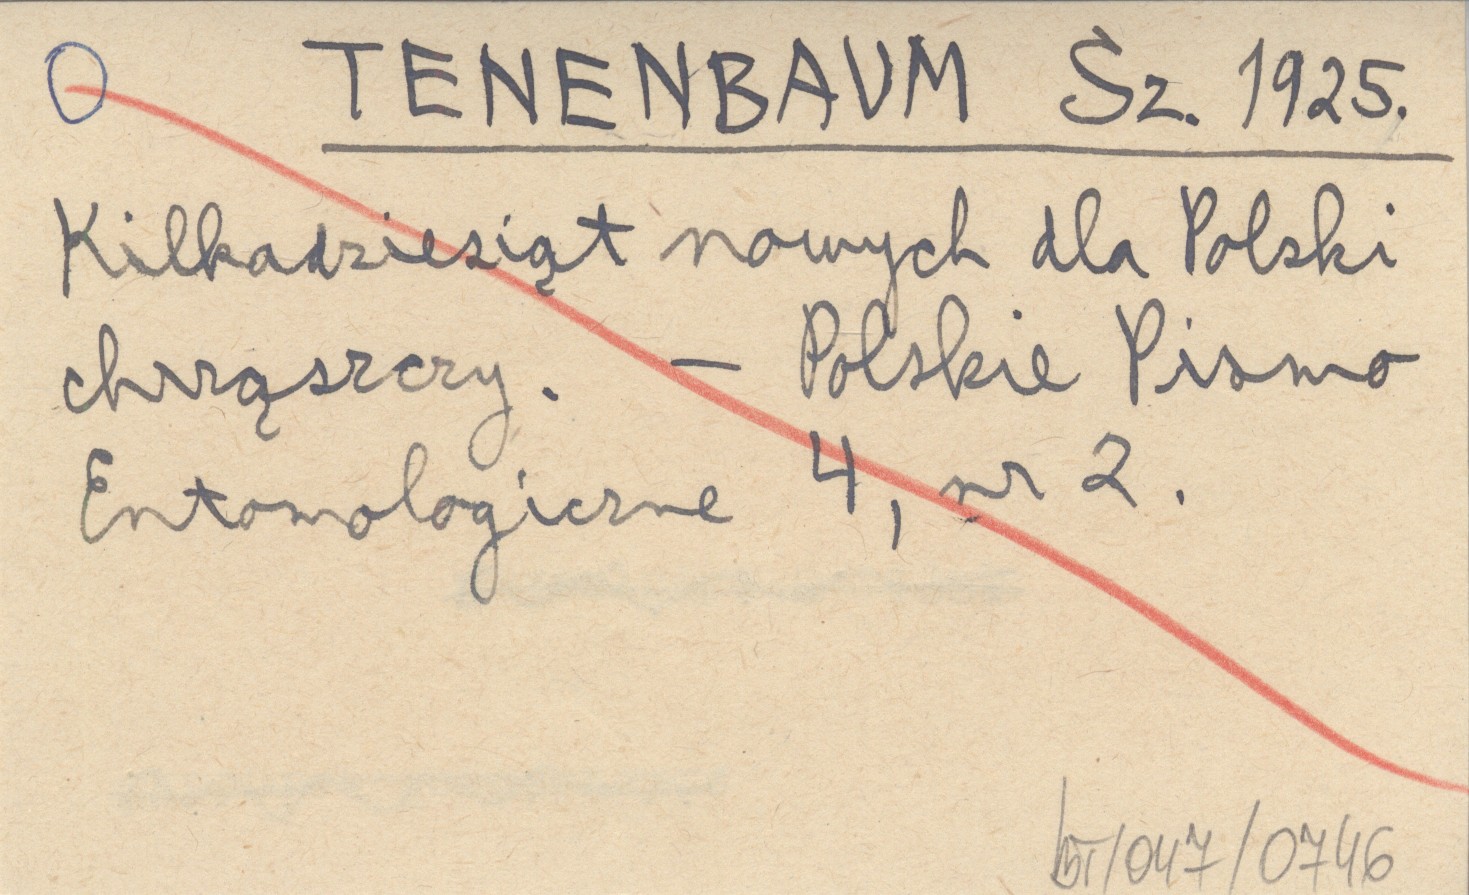 TENENBAUM Sz. 1925.
Kilkadziesiąt nowych dla Polski
chrząszczy. — Polskie Pismo
Entomologiczne 4, nr 2.
/047/0746